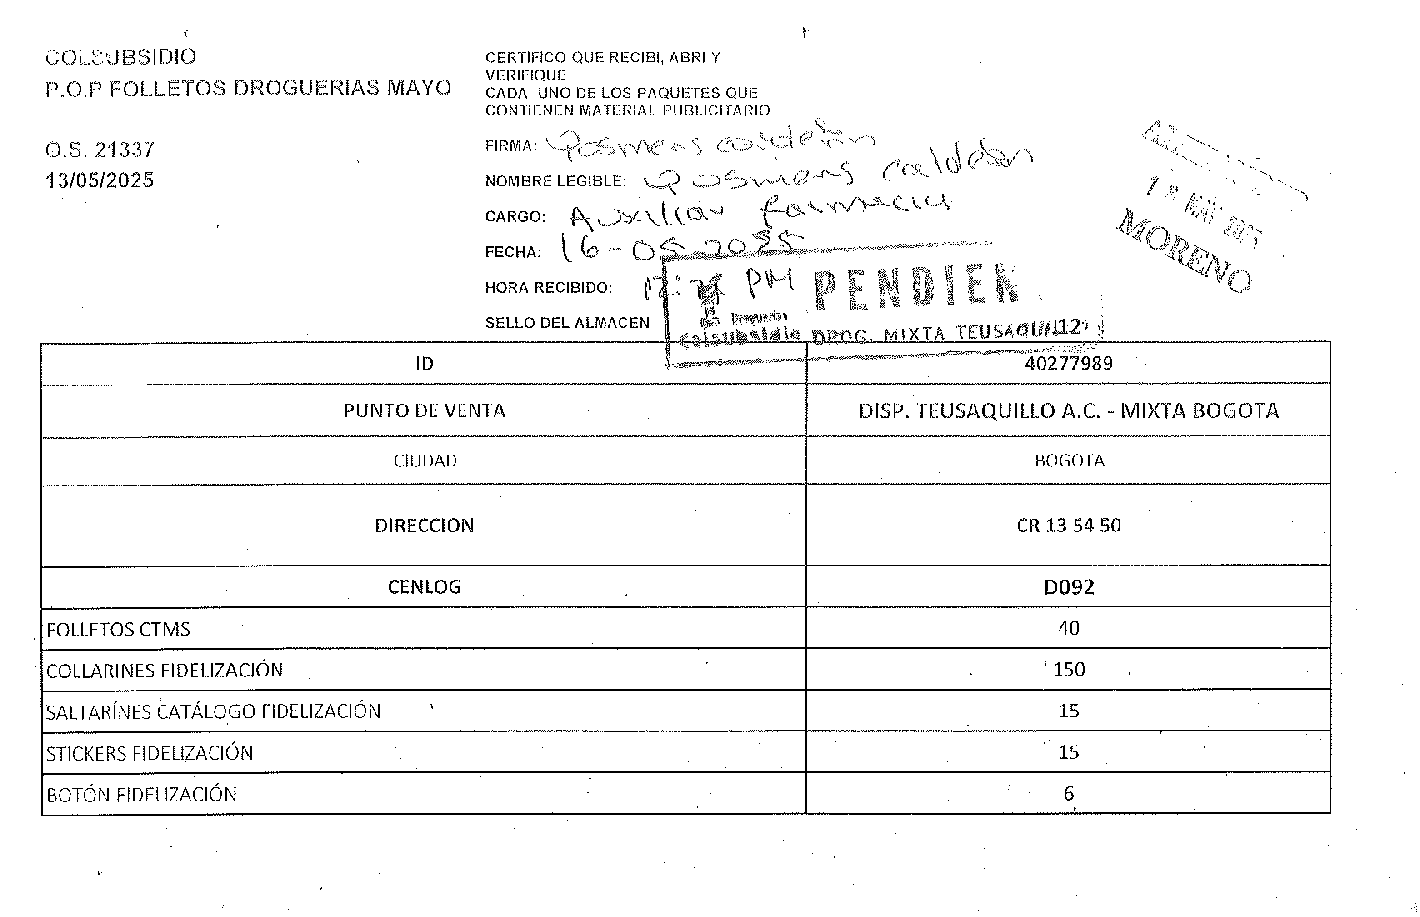 COLSUBSIDIO
P.O.P FOLLETOS DROGUERIAS MAYO
O.S. 21337
13/05/2025
CERTIFICO QUE RECIBI, ABRI Y
VERIFIQUE
CADA UNO DE LOS PAQUETES QUE
CONTIENEN MATERIAL PUBLICITARIO
FIRMA:
NOMBRE LEGIBLE:
CARGO: Auxiliar farmacia
FECHA: 16-05-2025
HORA RECIBIDO: PM
SELLO DEL ALMACEN
PENDIEN
Colsubsidio DROG. MIXTA TEUSAQUIL
12
MORENO
ID 40277989
PUNTO DE VENTA DISP. TEUSAQUILLO A.C. - MIXTA BOGOTA
CIUDAD BOGOTA
DIRECCION CR 13 54 50
CENLOG D092
FOLLETOS CTMS 40
COLLARINES FIDELIZACIÓN 150
SALTARÍNES CATÁLOGO FIDELIZACIÓN 15
STICKERS FIDELIZACIÓN 15
BOTÓN FIDELIZACIÓN 6